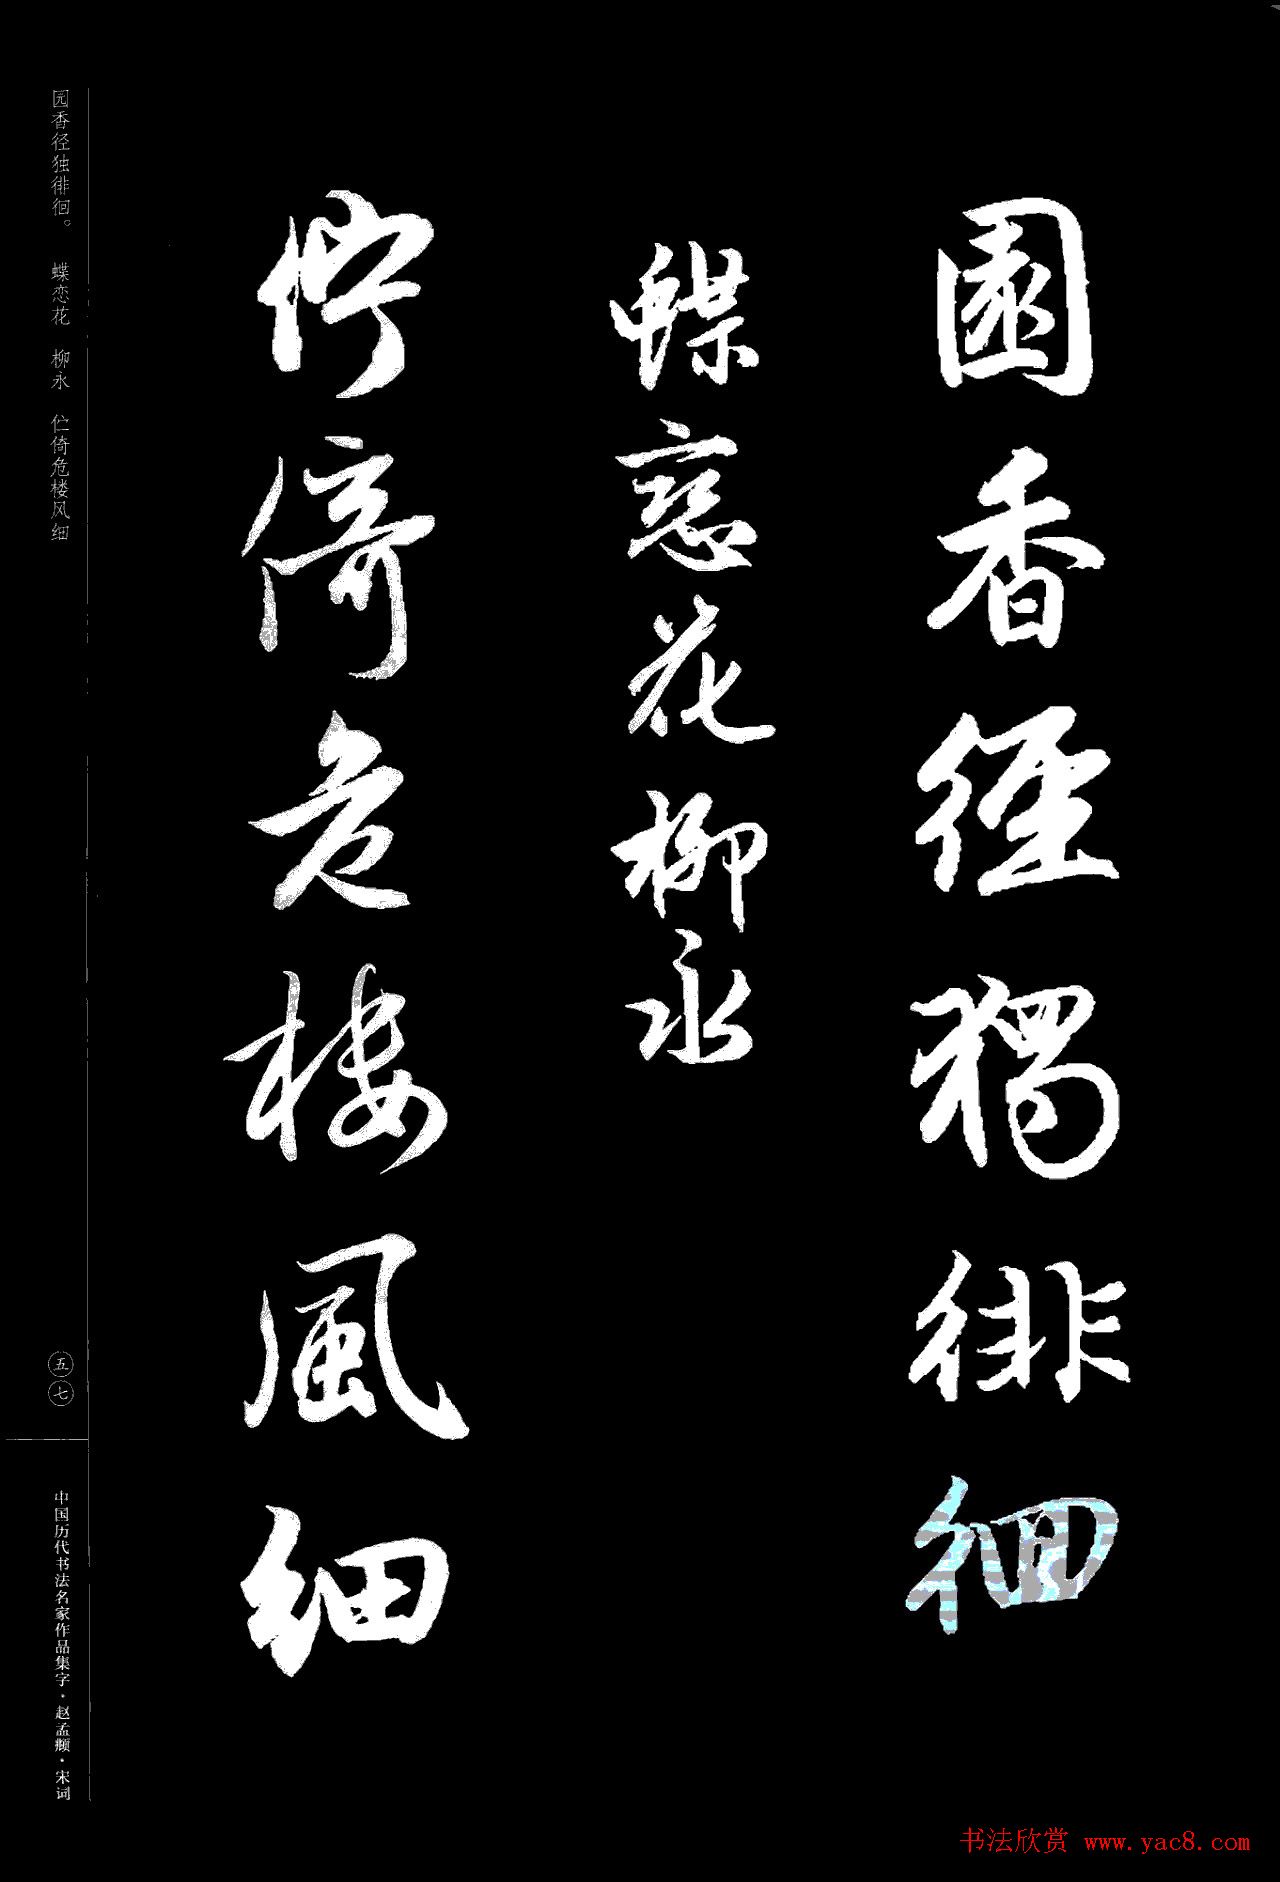 園香徑獨徘徊
蝶戀花 柳永
佇倚危樓風細
园香径独徘徊。 蝶恋花 柳永 伫倚危楼风细
五七
中国历代书法名家作品集字·赵孟頫·宋词
书法欣赏 www.yac8.com